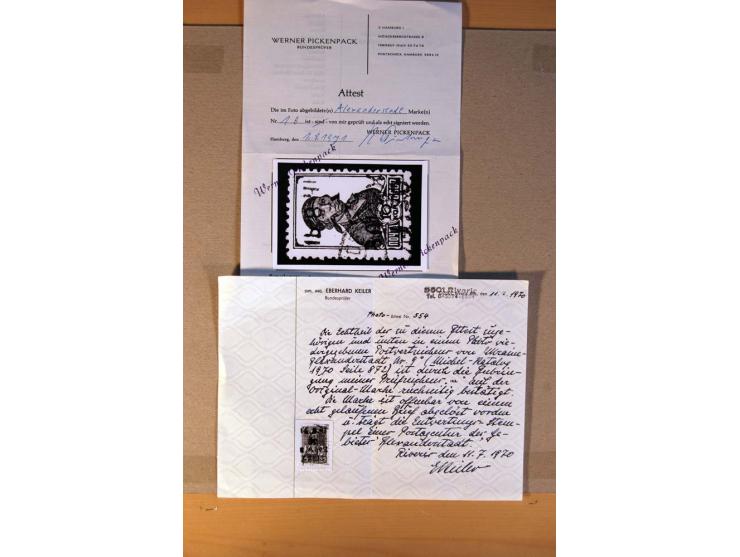 WERNER PICKENPACK
BUNDESPRÜFER
2 HAMBURG 1
MÖNCKEBERGSTRASSE
Attest
Die im Foto abgebildete(n) Alexanderstadt Marke(n)
Nr. ist - sind - von mir geprüft und als echt signiert worden.
WERNER PICKENPACK
Hamburg, den
Werner Pickenpack
Werner Pickenpack
EBERHARD KEILER
Bundesprüfer
den 11. 7. 1970
Photo-Attest Nr. 554
Die Echtheit der zu diesem Attest zuge-
hörigen und unten in einem Photo wie-
dergegebenen Postwertzeichens von Ukraine-
Alexanderstadt Nr. 9 (Michel-Katalog
1970 Seite 892) ist durch die Anbrin-
gung meiner Prüfzeichens auf der
Original-Marke rückseitig bestätigt.
Die Marke ist offenbar von einem
echt gelaufenen Brief abgelöst worden
u. trägt die Entwertungs-Stem-
pel einer Postagentur des Ge-
bietes Alexanderstadt.
den 11. 7. 1970
EKeiler